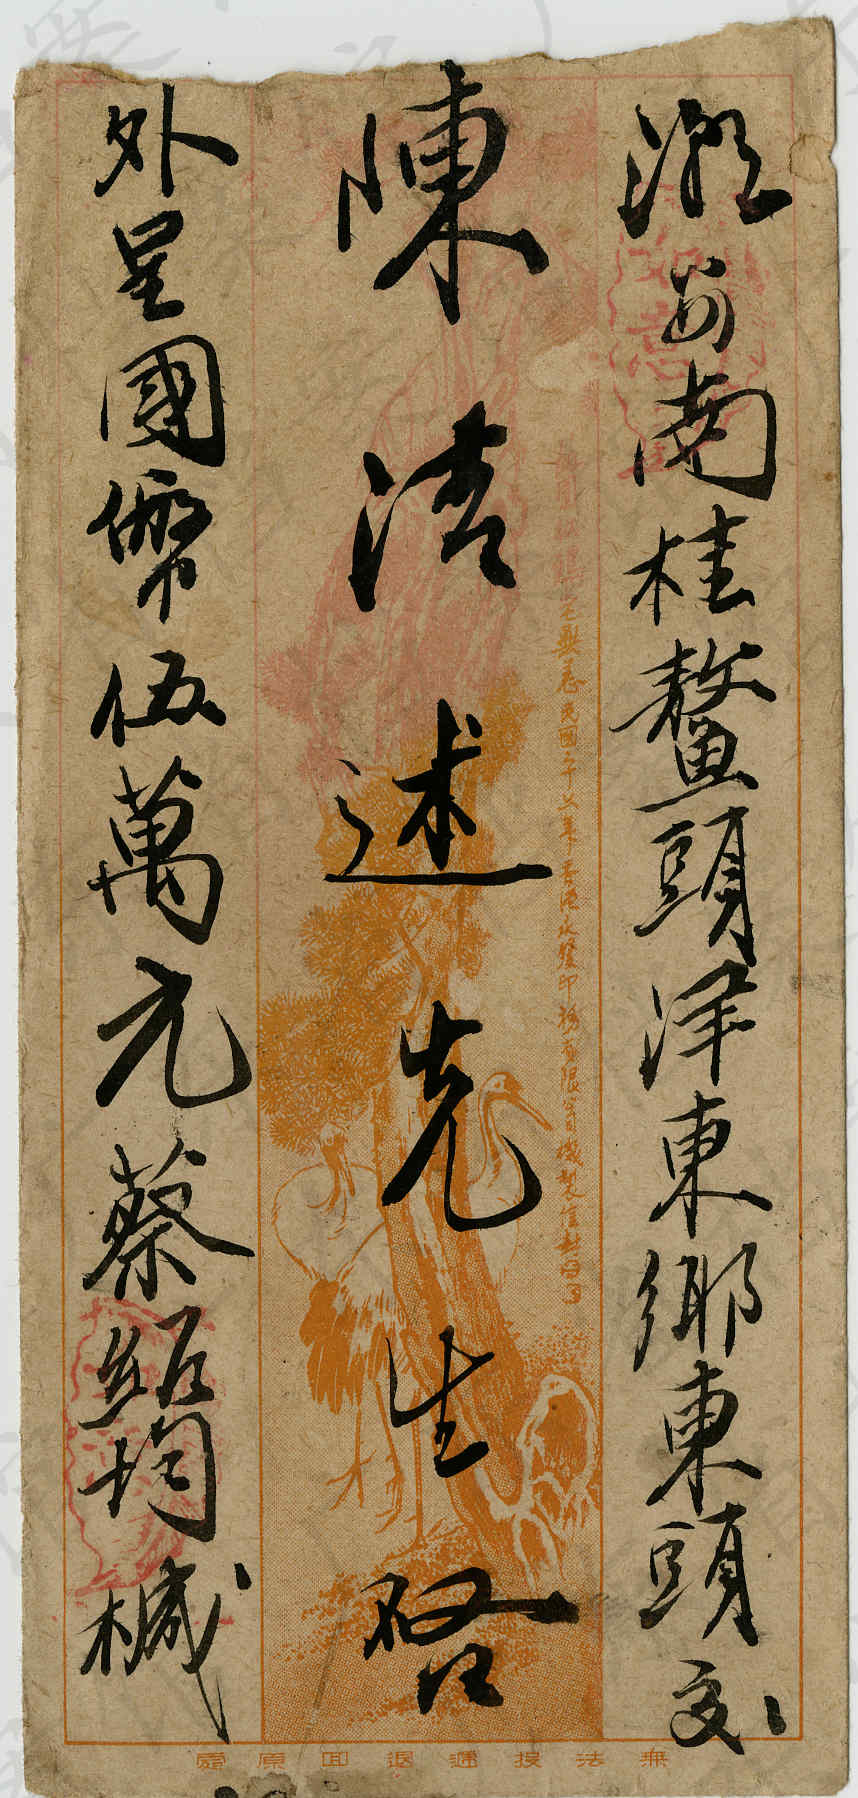 潮安南桂鰲頭洋東鄉東頭交
陳清述先生啓
外呈國幣伍萬元蔡紹均械
民國三十六年香港永發印務有限公司機製信封
無法投遞退回原處